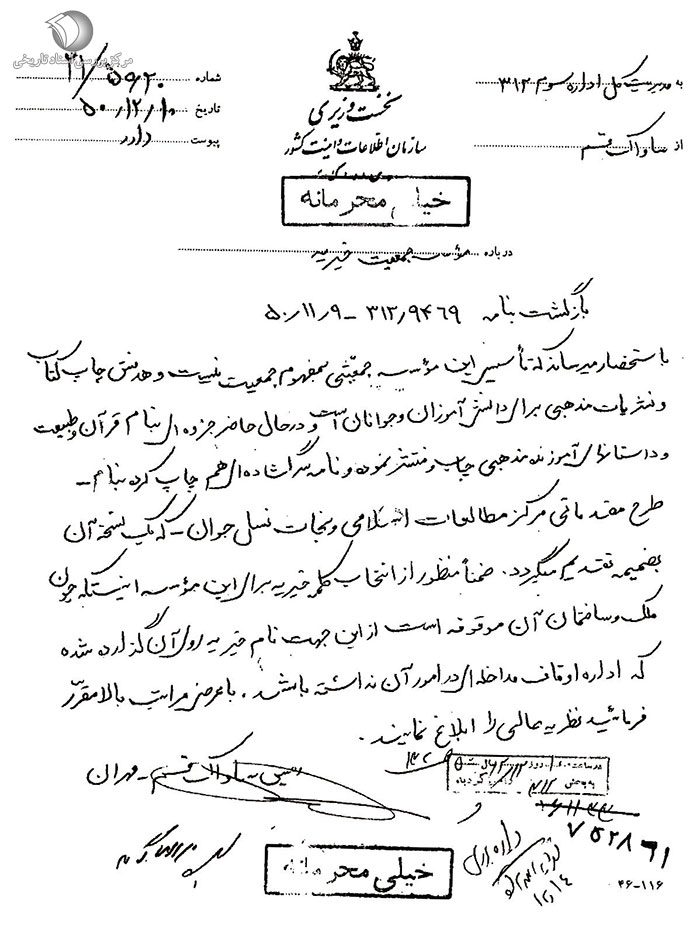 مرکز بررسی اسناد تاریخی
به مدیریت کل اداره سوم ۳۱۲
از ساواک قم
نخست وزیری
سازمان اطلاعات و امنیت کشور
شماره ۲۱/۵۹۲۰
تاریخ ۵۰/۱۲/۱۰
پیوست دارد
خیلی محرمانه
درباره مؤسسه جمعیت خیریه
بازگشت بنامه ۳۱۲/۹۴۶۹ – ۵۰/۱۱/۹
باستحضار میرساند که تأسیس این مؤسسه جمعیتی بمفهوم جمعیت نیست و هدفش چاپ کتاب
و نشریات مذهبی برای دانش آموزان و جوانان است و در حال حاضر جزوه ای بنام قرآن و طبیعت
و داستانهای آموزنده مذهبی چاپ و منتشر نموده و نامه سرگشاده ای هم چاپ کرده بنام –
طرح مقدماتی مرکز مطالعات اسلامی و نجات نسل جوان – که یک نسخه آن
بضمیمه تقدیم میگردد. ضمناً منظور از انتخاب کلمه خیریه برای این مؤسسه اینستکه چون
ملک و ساختمان آن موقوفه است از این جهت نام خیریه روی آن گذارده شده
که اداره اوقاف مداخله ای در امور آن نداشته باشد. با عرض مراتب بالا مقرر
فرمائید نظریه عالی را ابلاغ نمایند.
رئیس ساواک قم – مهران
به بخش ۳۱۲
۷۵۲۸۶۱
۱۲/۱۴
۴۶-۱۱۶
خیلی محرمانه